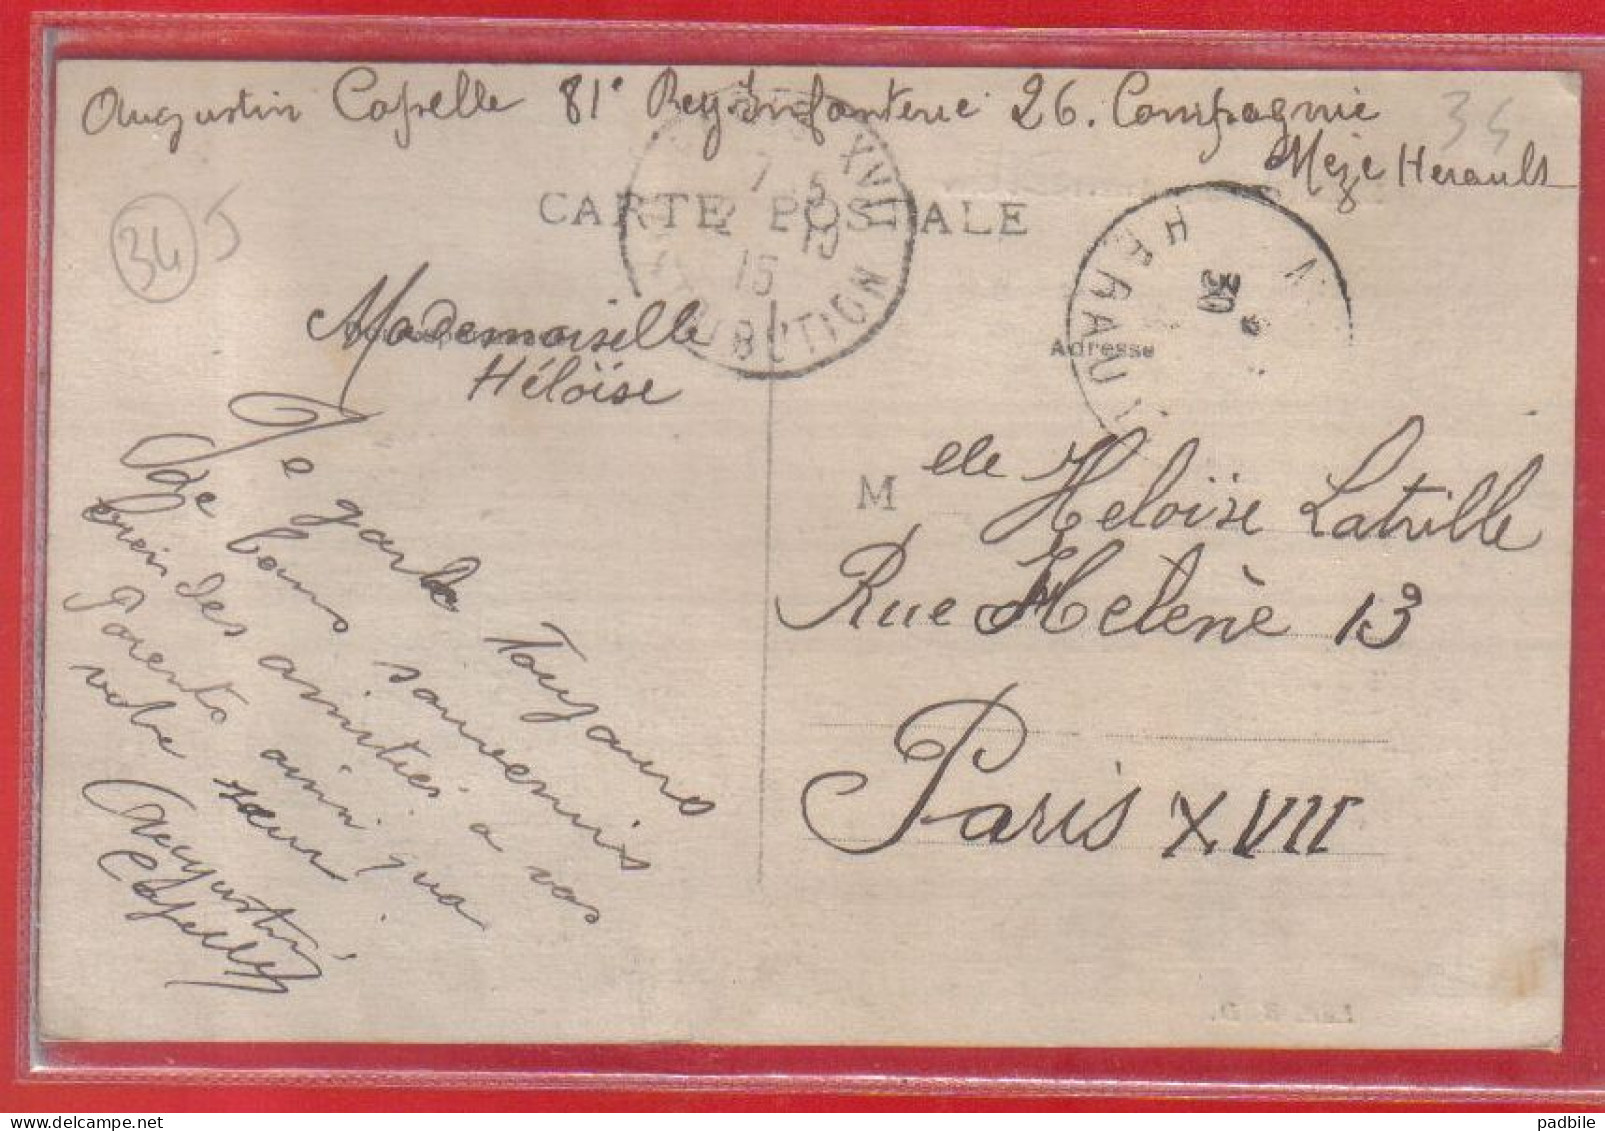 Augustin Capelle 81e Reg. Infanterie 26. Compagnie
Mèze Herault
34
34
5
CARTE POSTALE
XVII
7
15
10
DISTRIBUTION
HERAULT
30
Adresse
Mademoiselle
Héloïse
Je garde Toujours
de bons souvenirs
bien des amitiés a vos
Parents ainsi qua
votre sœur
Augustin
Capelle
M elle Heloïse Latrille
Rue Helène 13
Paris XVII
padbile
www.delcampe.net